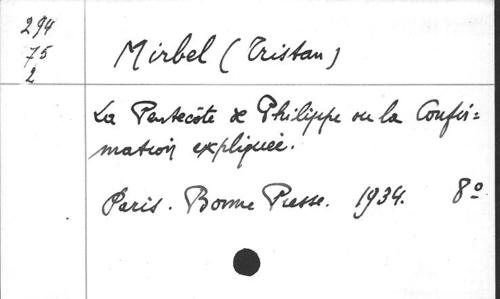 294
75
2
Mirbel (Tristan)
La Pentecôte de Philippe ou la Confir=
mation expliquée.
Paris. Bonne Presse. 1934. 8º